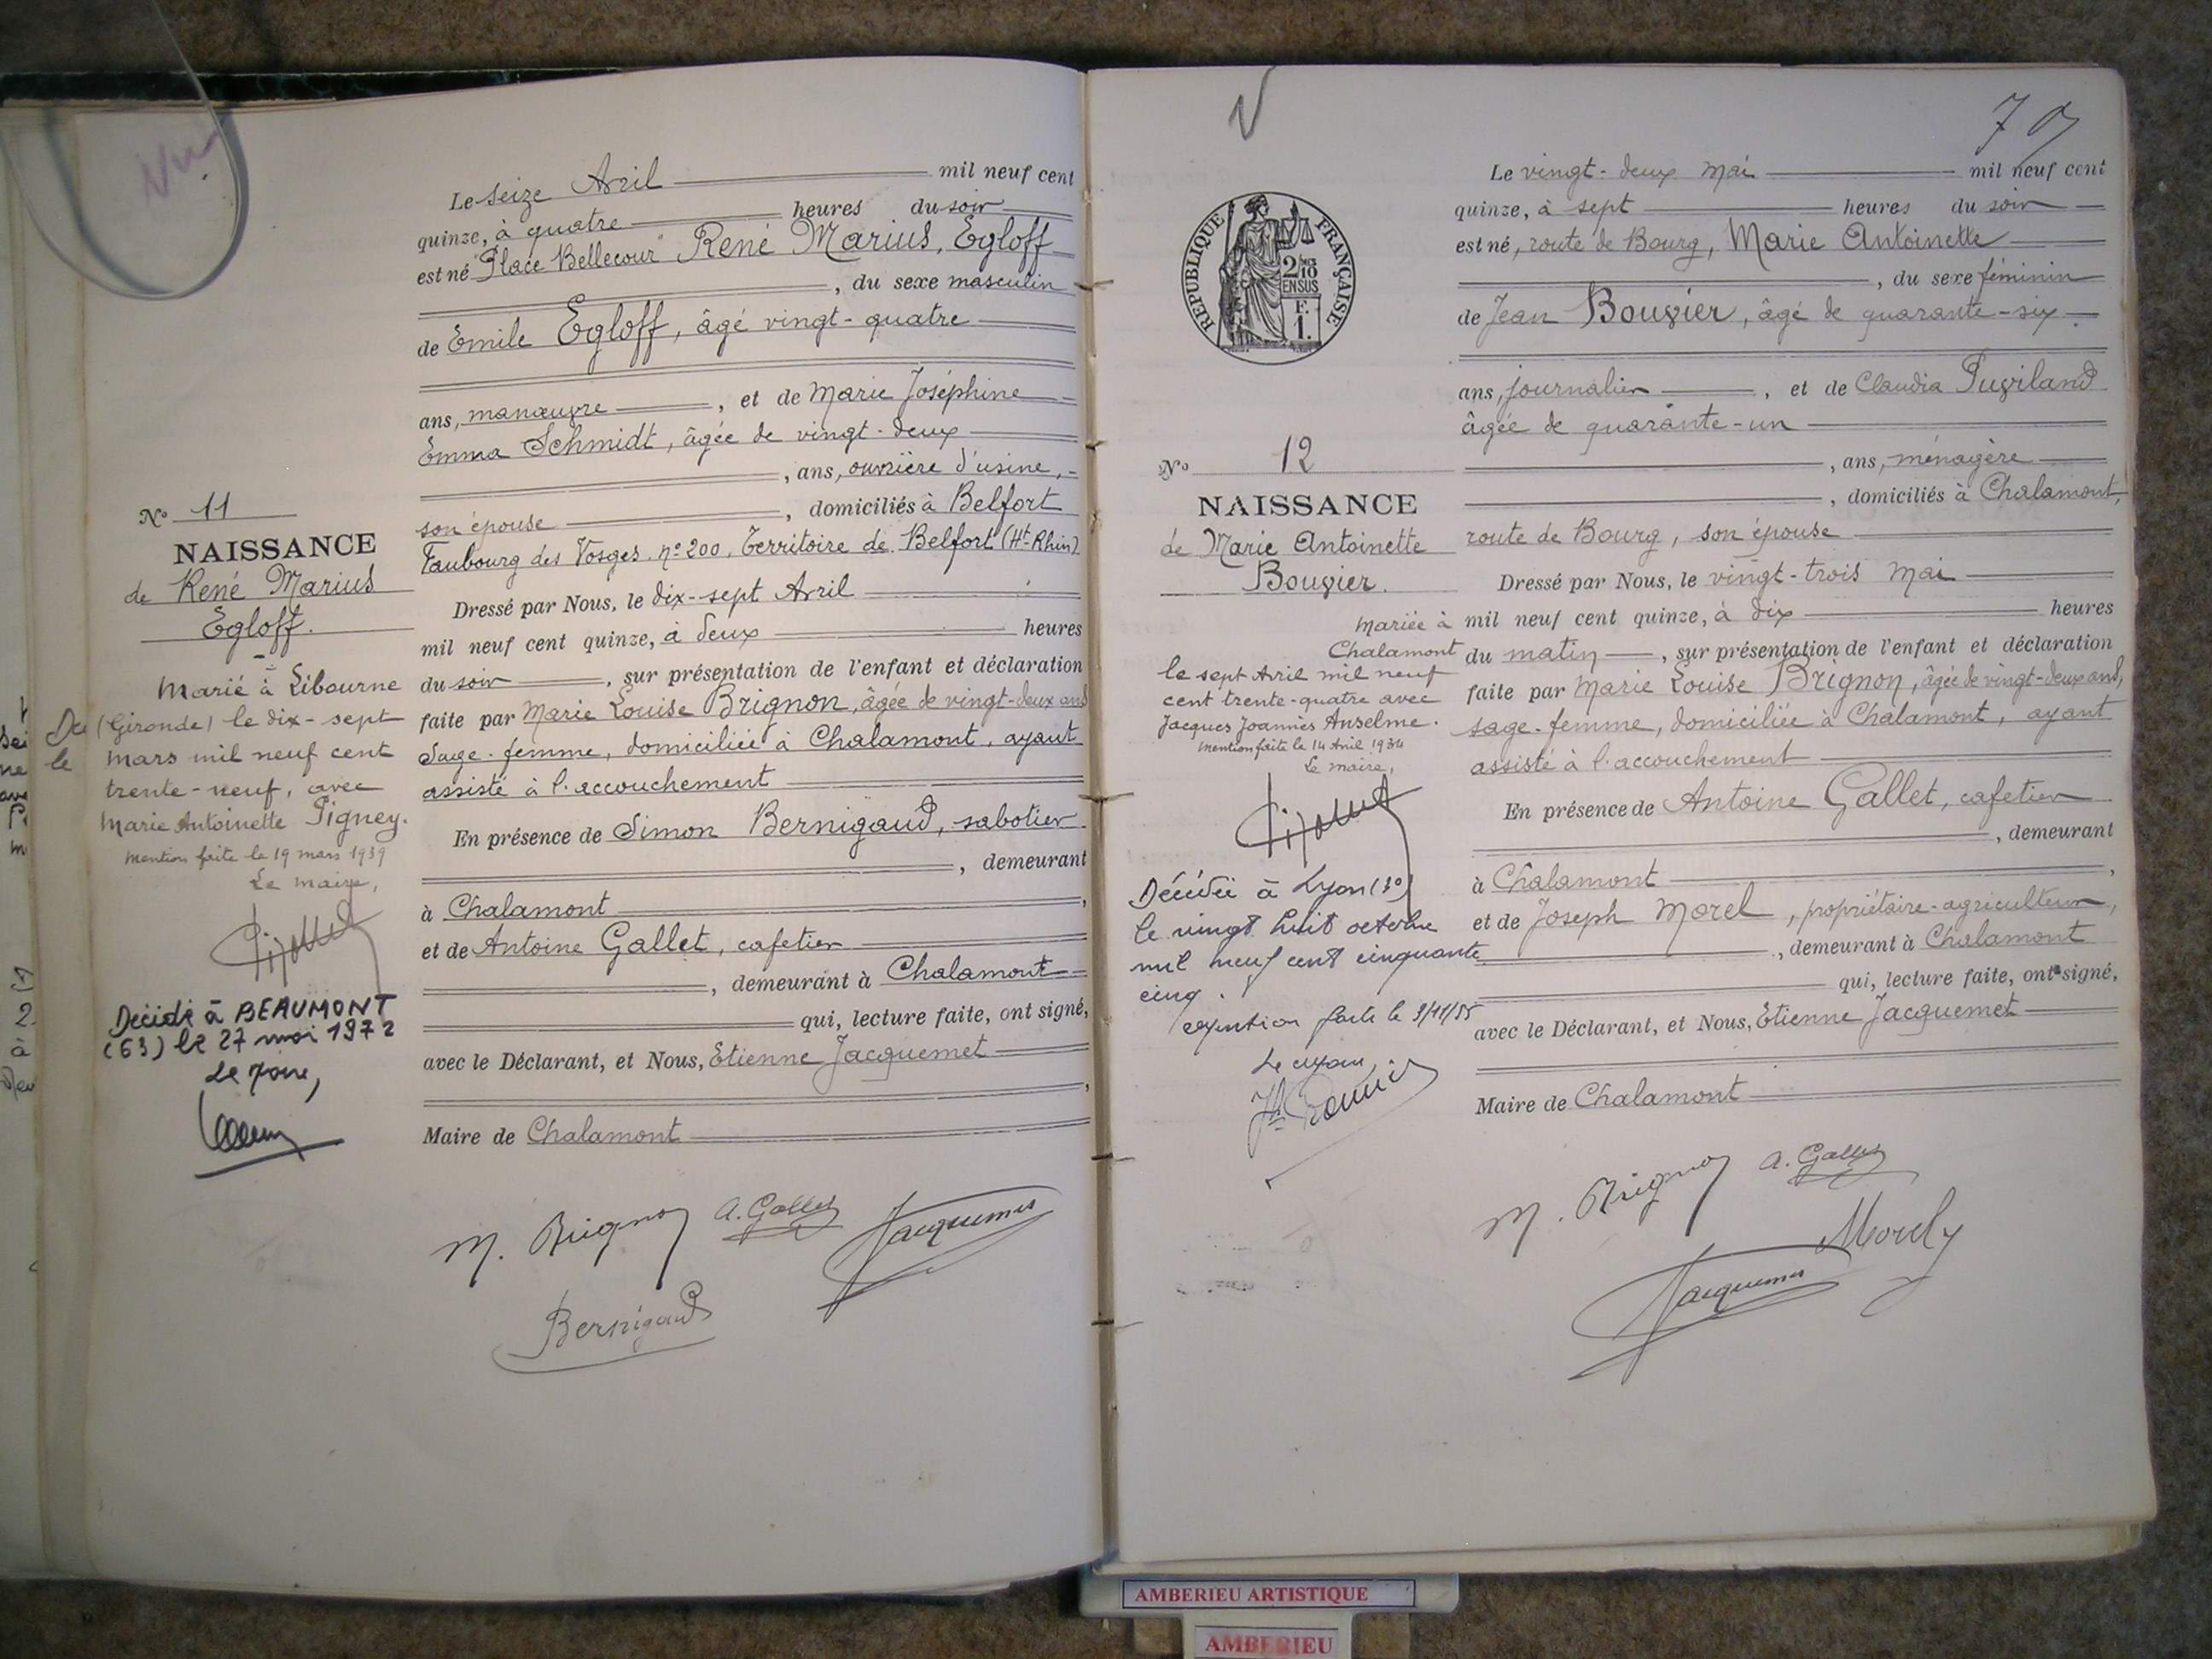 Le seize Avril mil neuf cent
quinze, à quatre heures du soir
est né "Place Bellecour" René Marius, Egloff
, du sexe masculin
de Emile Egloff, âgé vingt-quatre
ans, manœuvre , et de Marie Joséphine
Emma Schmidt, âgée de vingt-deux
, ans, ouvrière d'usine,
son épouse , domiciliés à Belfort
Faubourg des Vosges nº 200, Territoire de Belfort (Ht-Rhin)
Dressé par Nous, le dix-sept Avril
mil neuf cent quinze, à deux heures
du soir , sur présentation de l'enfant et déclaration
faite par Marie Louise Brignon, âgée de vingt-deux ans
Sage-femme, domiciliée à Chalamont, ayant
assisté à l'accouchement
En présence de Simon Bernigaud, sabotier
, demeurant
à Chalamont ,
et de Antoine Gallet, cafetier
, demeurant à Chalamont
qui, lecture faite, ont signé,
avec le Déclarant, et Nous, Etienne Jacquemet
,
Maire de Chalamont
M. Brignon A. Gallet Jacquemet
Bernigaud
Nº 11
NAISSANCE
de René Marius
Egloff.
Marié à Libourne
(Gironde) le dix-sept
mars mil neuf cent
trente-neuf, avec
Marie Antoinette Pigney.
Mention faite le 19 mars 1939
Le maire,
Décédé à BEAUMONT
(63) le 27 mai 1972
Le Maire,
79
RÉPUBLIQUE FRANÇAISE
2/10
EN SUS
F.
1.
Le vingt-deux Mai mil neuf cent
quinze, à sept heures du soir
est né, route de Bourg, Marie Antoinette
, du sexe féminin
de Jean Bouvier, âgé de quarante-six
ans, journalier , et de Claudia Puviland
âgée de quarante-un
, ans, ménagère
, domiciliés à Chalamont,
route de Bourg, son épouse
Dressé par Nous, le vingt-trois Mai
mil neuf cent quinze, à dix heures
du matin , sur présentation de l'enfant et déclaration
faite par Marie Louise Brignon, âgée de vingt-deux ans,
sage-femme, domiciliée à Chalamont, ayant
assisté à l'accouchement
En présence de Antoine Gallet, cafetier
, demeurant
à Chalamont ,
et de Joseph Morel, propriétaire-agriculteur,
, demeurant à Chalamont
qui, lecture faite, ont signé,
avec le Déclarant, et Nous, Etienne Jacquemet
Maire de Chalamont
M. Brignon A. Gallet
Morel
Jacquemet
Nº 12
NAISSANCE
de Marie Antoinette
Bouvier.
Mariée à
Chalamont
le sept Avril mil neuf
cent trente-quatre avec
Jacques Joannès Anselme.
Mention faite le 14 Avril 1934
Le maire,
Décédée à Lyon (3º)
le vingt huit octobre
mil neuf cent cinquante
cinq.
mention faite le 9/11/55
Le maire,
AMBERIEU ARTISTIQUE
AMBERIEU